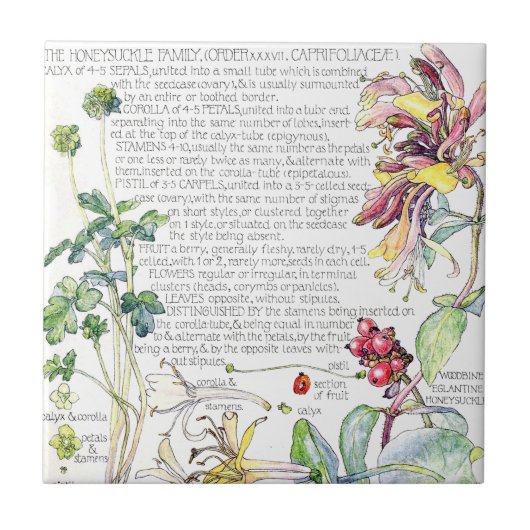 THE HONEYSUCKLE FAMILY, (ORDER XXXVII. CAPRIFOLIACEÆ).
CALYX OF 4-5 SEPALS, united into a small tube which is combined
with the seedcase (ovary), & is usually surmounted
by an entire or toothed border.
COROLLA OF 4-5 PETALS, united into a tube and
separating into the same number of lobes, insert-
ed at the top of the calyx-tube (epigynous).
STAMENS 4-10, usually the same number as the petals
or one less or rarely twice as many, & alternate with
them, inserted on the corolla-tube (epipetalous).
PISTIL OF 3-5 CARPELS, united into a 3-5-celled seed-
case (ovary), with the same number of stigmas
on short styles, or clustered together
on 1 style, or situated on the seedcase
the style being absent.
FRUIT a berry, generally fleshy, rarely dry, 4-5
celled, with 1 or 2, rarely more, seeds in each cell.
FLOWERS regular or irregular, in terminal
clusters (heads, corymbs or panicles).
LEAVES opposite, without stipules.
DISTINGUISHED by the stamens being inserted on
the corolla-tube, & being equal in number
to & alternate with the petals, by the fruit
being a berry, & by the opposite leaves with-
out stipules.
pistil
corolla &
stamens.
section
of fruit
calyx
WOODBINE
EGLANTINE
HONEYSUCKLE
calyx & corolla
petals
&
stamens
pistil